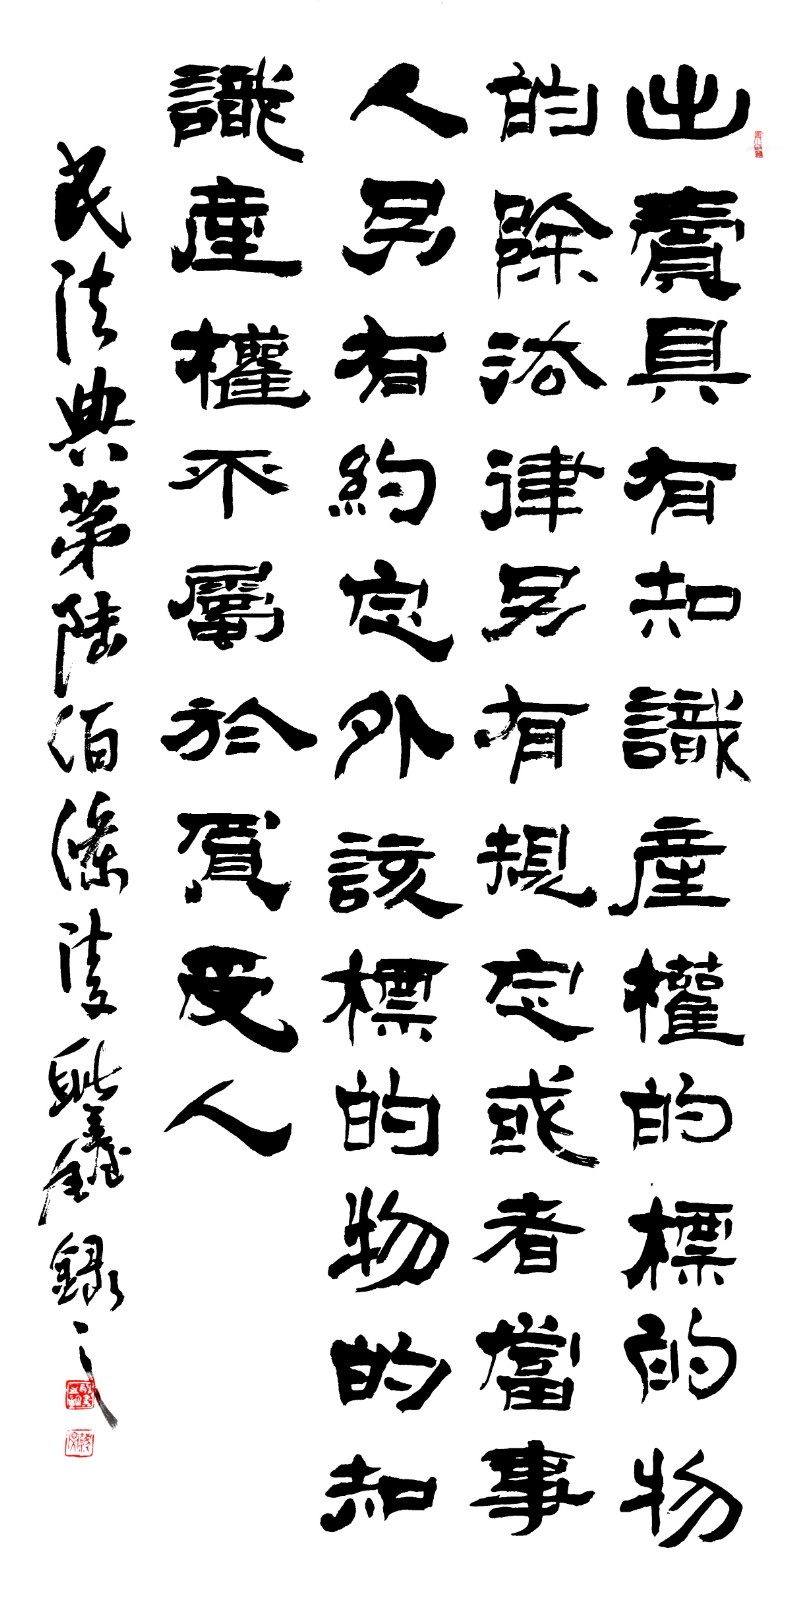 出賣具有知識產權的標的物
的除法律另有規定或者當事
人另有約定外該標的物的知
識產權不屬於買受人
民法典第陸佰條 鑫錄之